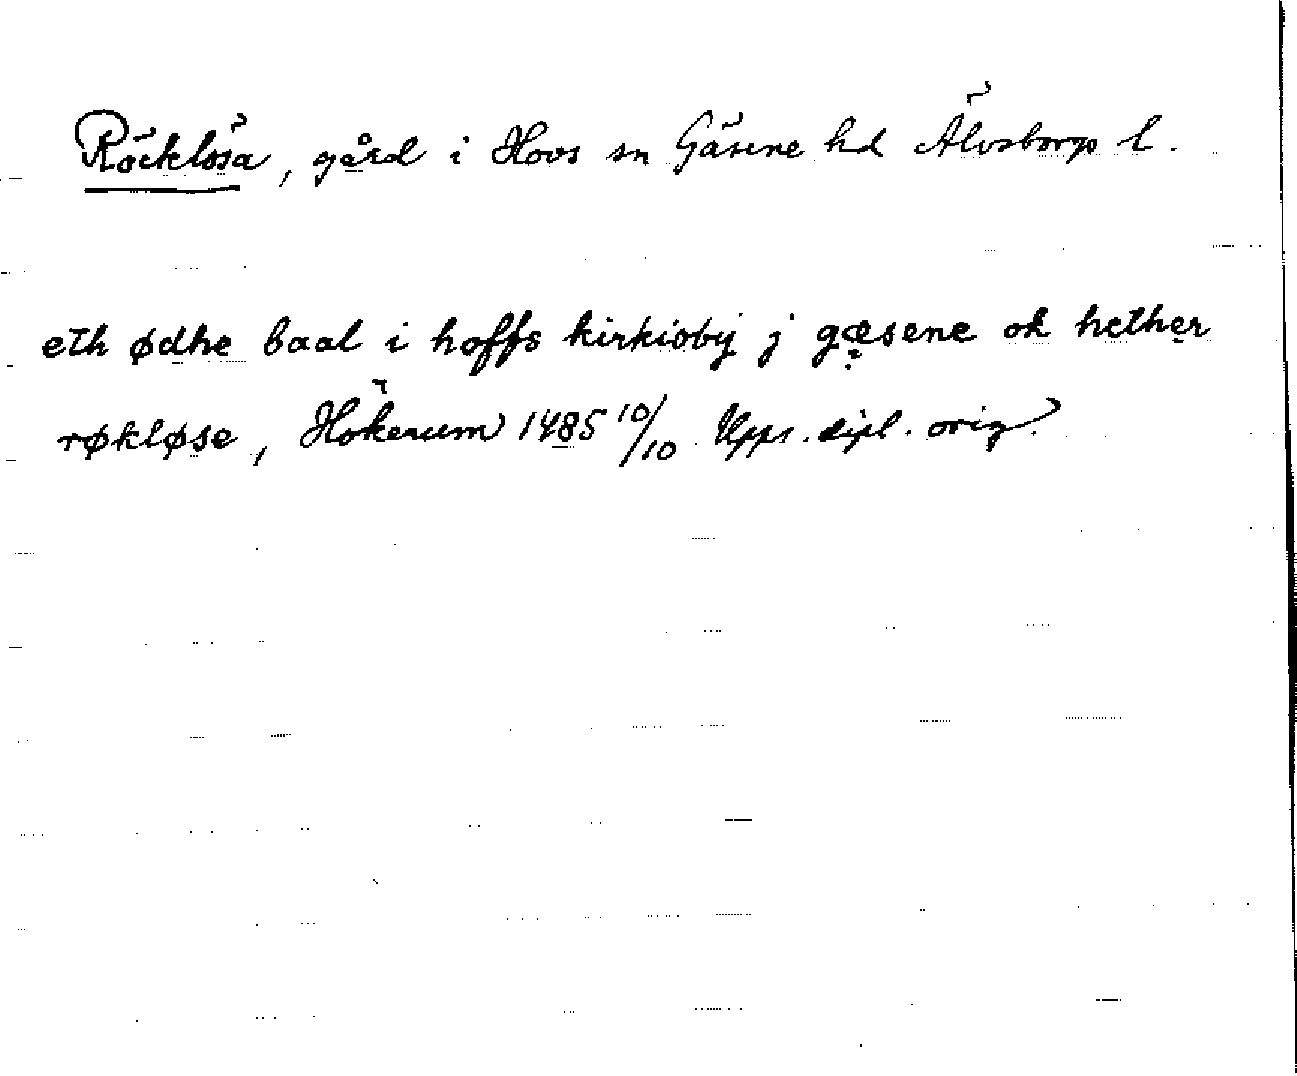 Röcklösa, gård i Hovs sn Gäsene hd Älvsborgs l.
eth ødhe baal i hoffs kirkioby j gæsene ok hether
røkløse, Hökerum 1485 10/10 Upps. dipl. orig.